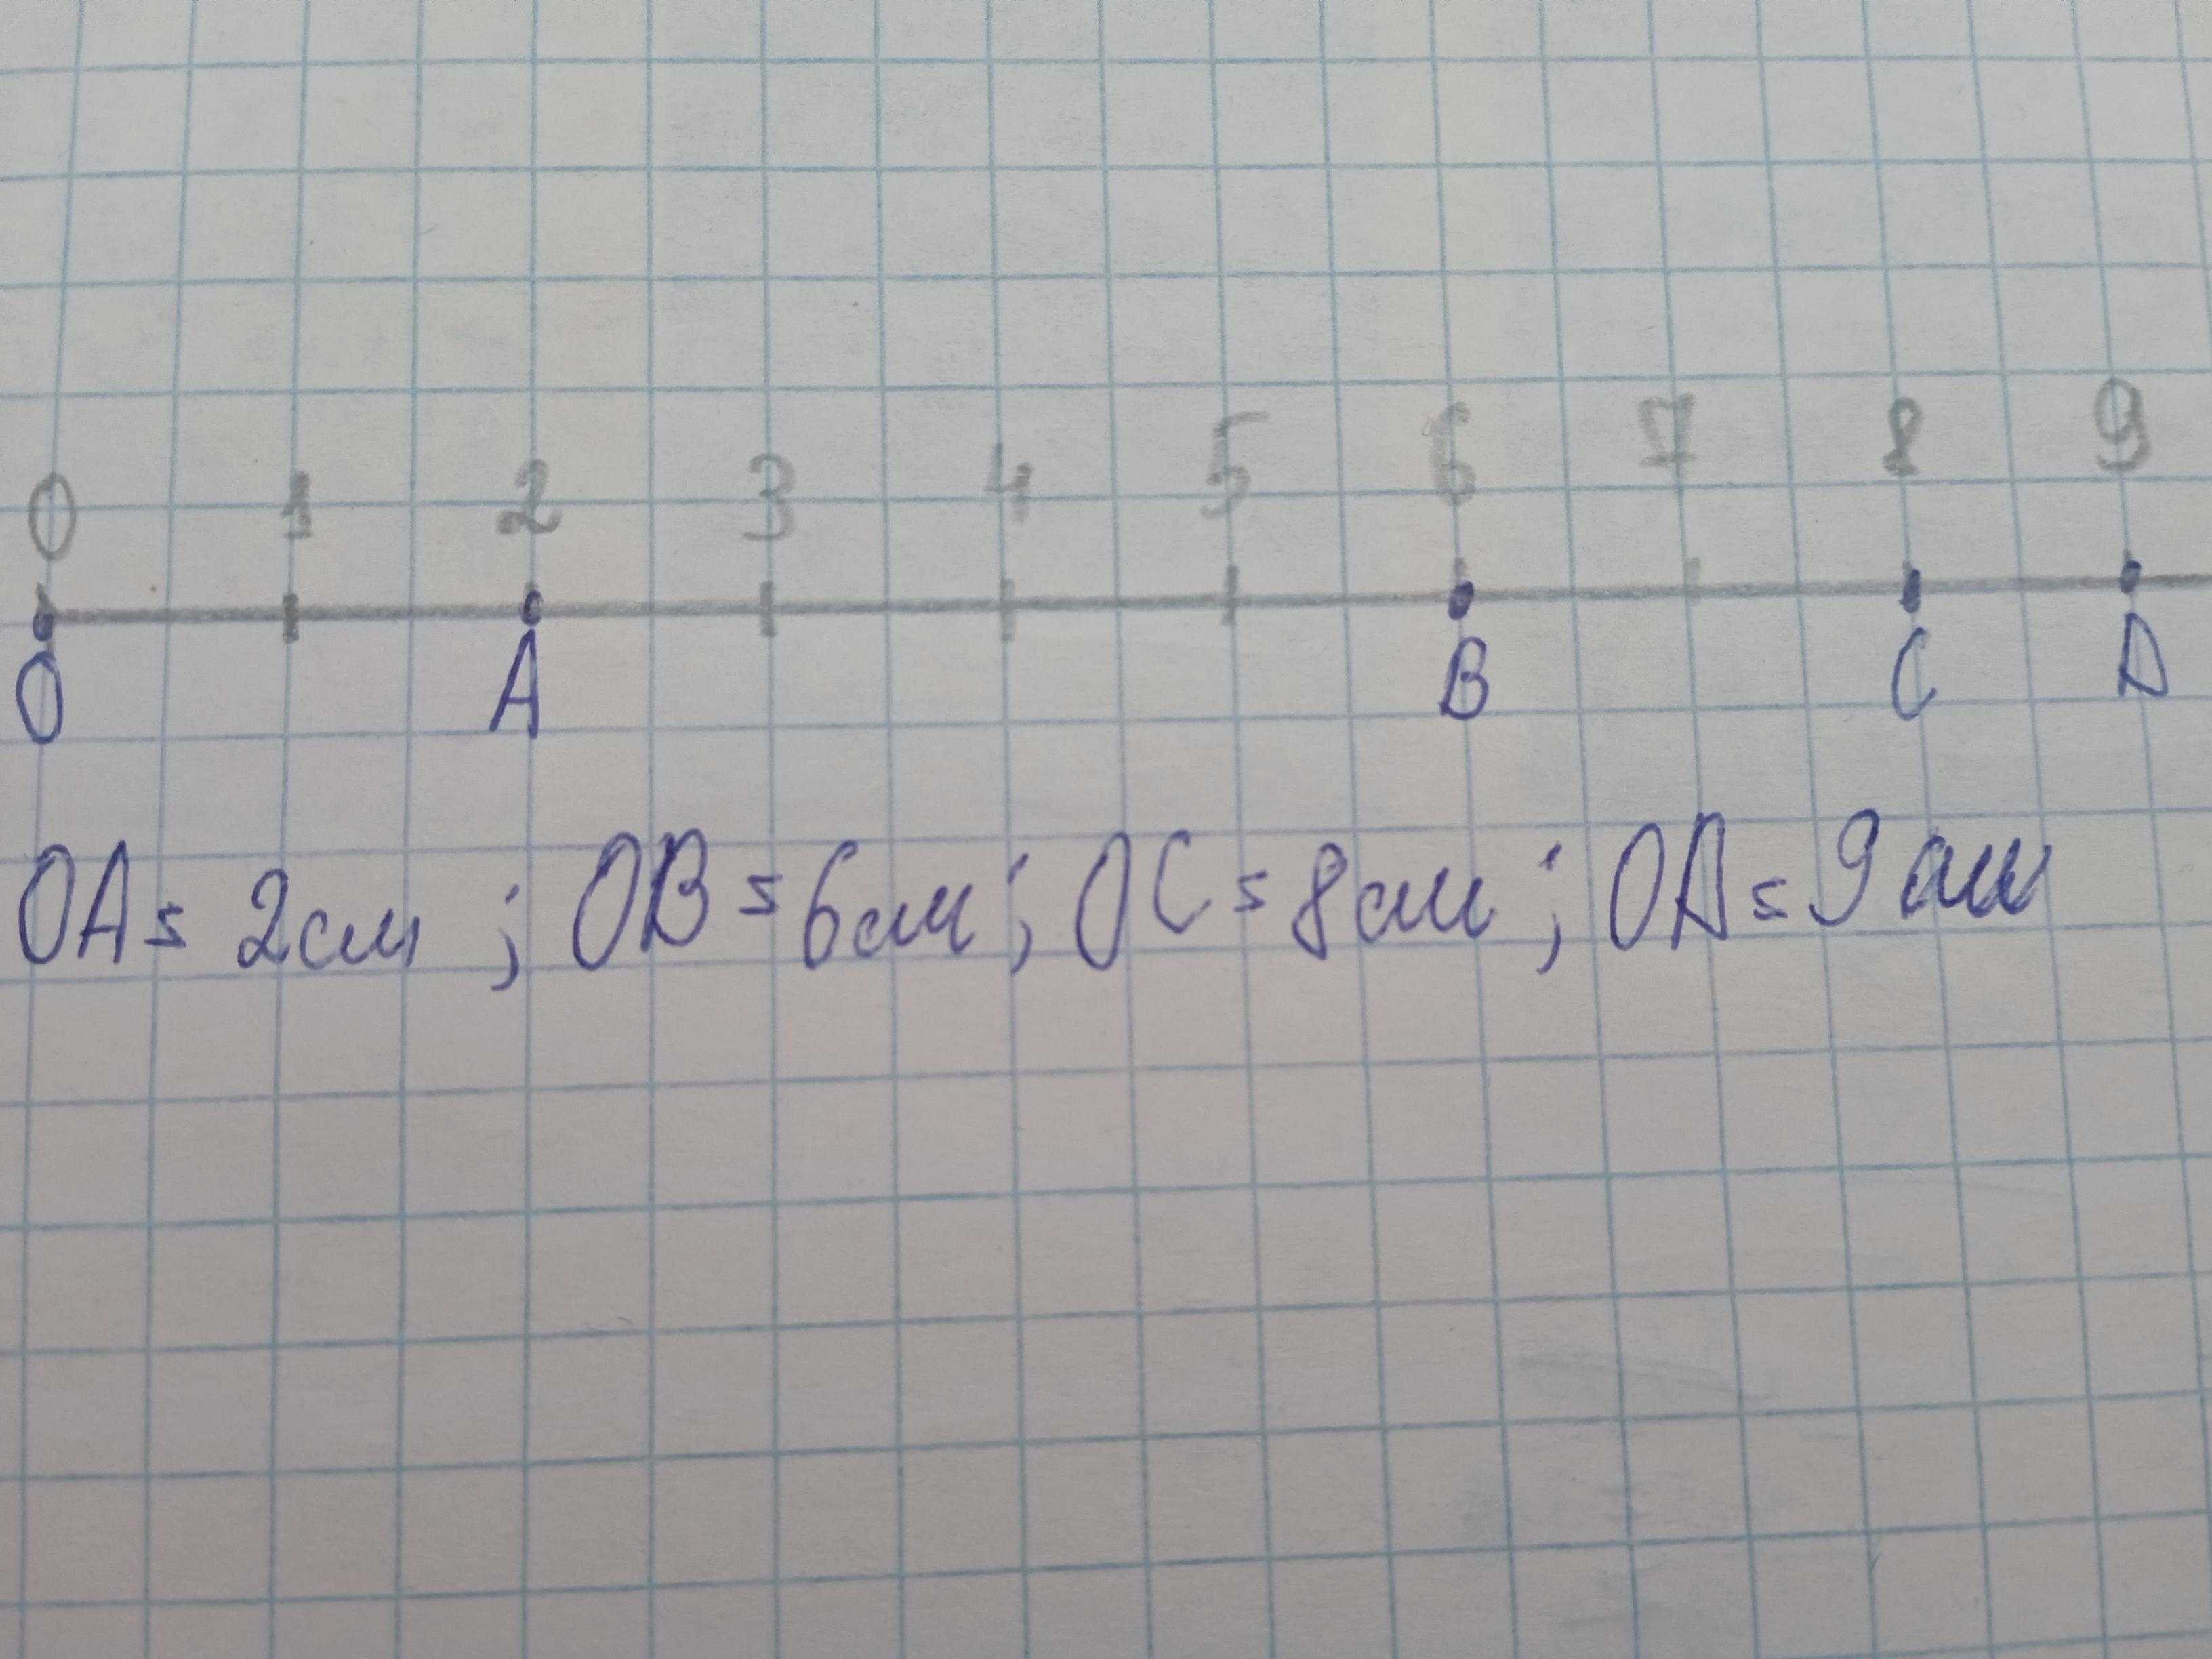 0 1 2 3 4 5 6 7 8 9
O A B C D
OA = 2см ; OB = 6см ; OC = 8см ; OD = 9см